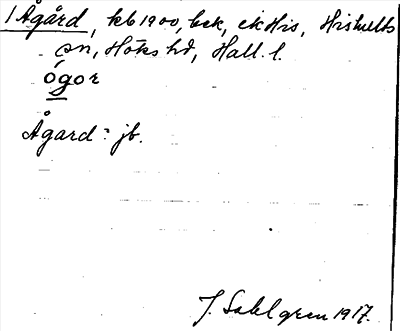 1 Ågård, kb 1900, bek, ek Hrs, Hishults
sn, Höks hd, Hall. l.
ógor
Ågard: jb.
J. Sahlgren 1917.